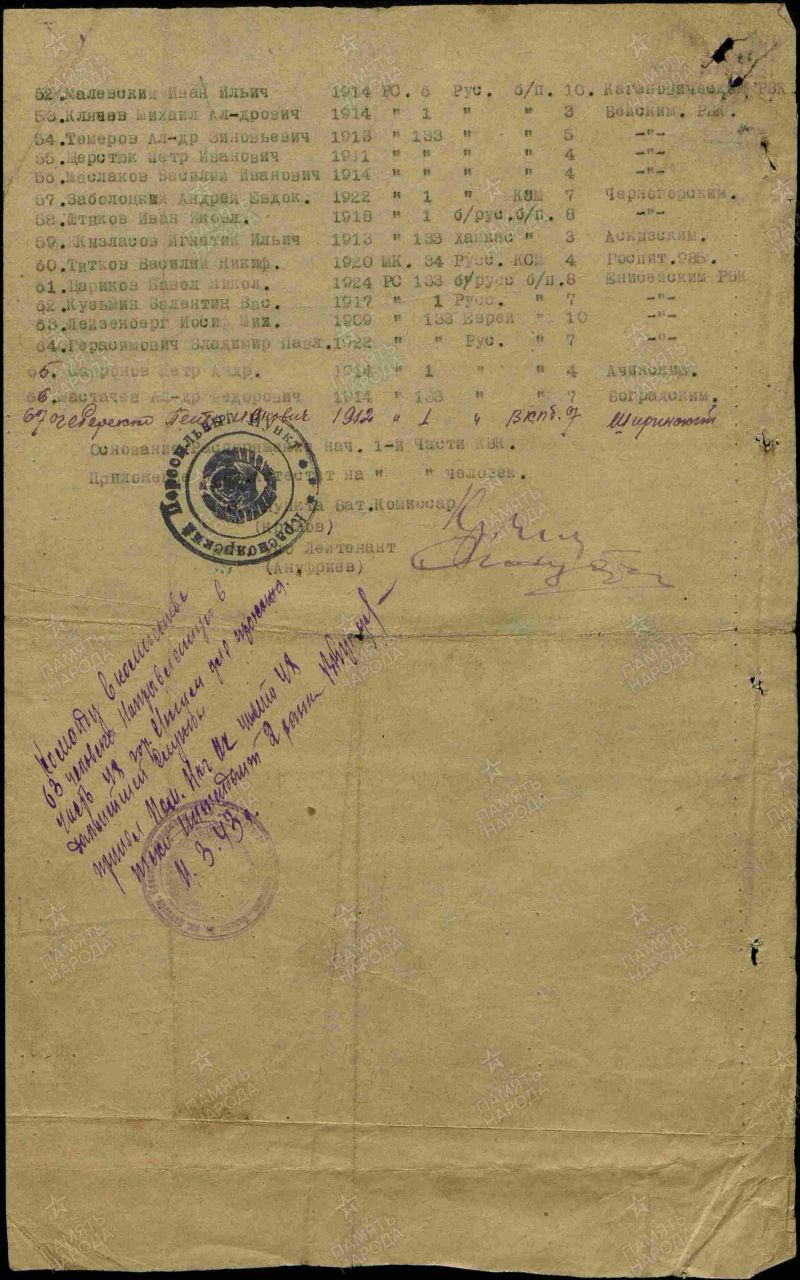 52.Малевский Иван Ильич 1914 РС. 6 Рус. б/п. 10. Кагеновическим РВК
53.Клячев Михаил Ал-дрович 1914 " 1 " " 3 Бейским. РВК.
54.Темеров Ал-др Зиновьевич 1913 " 133 " " 5 -"-
55.Щерстюк Петр Иванович 1911 " " " " 4 -"-
56.Маслаков Василий Иванович 1914 " " " " 4 -"-
57.Заболоцкий Андрей Евдок. 1922 " 1 " КСМ 7 Черногорским.
58.Штаков Иван Яковл. 1918 " 1 б/рус.б/п. 8 -"-
59.Кызласов Игнатий Ильич 1913 " 133 Хаккас " 3 Аскизским.
60.Титков Василий Никиф. 1920 МК. 34 Русс. КСМ 4 Госпит.985.
61.Цариков Павел Никол. 1924 РС 133 б/русс б/п.8 Енисейским РВК
62.Кузьмин Валентин Вас. 1917 " 1 Русс. " 7 -"-
63.Лейзенберг Иосиф Мих. 1909 " 133 Еврей " 10 -"-
64.Герасимович Владимир Павл.1922 " " Рус. " 7 -"-
65. Сафронов Петр Андр. 1914 " 1 " " 4 Ачинским.
66. Мастачев Ал-др Федорович 1914 " 133 " " 7 Боградским.
67 1912 " 1 " ВКПб. 7 Ширинский
Основание: Распоряжение нач. 1-й Части КВК.
Приложение: Аттестат на " " человек.
Пункта Бат.Комиссар
(Крылов)
Лейтенант
(Ануфриев)
Красноярский Пересыльный Пункт
Команду в количестве
63 человека Направленную в
часть 48 для прохожд.
дальнейшей службы
принял Пом. Нач
интендант 2 ранга
11.3.43г.
ПАМЯТЬ НАРОДА